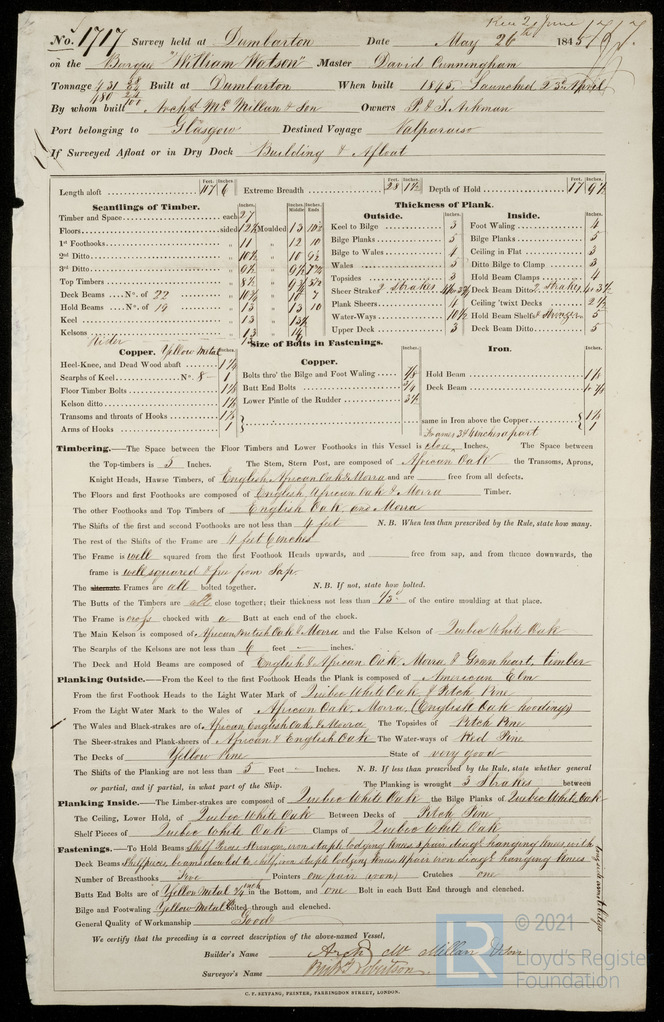 Rec 2 June 1717.
No. 1717 Survey held at Dumbarton Date May 26th 1845
on the Barque "William Watson" Master David Cunningham
Tonnage 431 Built at Dumbarton When built 1845. Launched 23d April
480
By whom built Archd. McMillan & Son Owners P & T. Aikman
Port belonging to Glasgow Destined Voyage Valparaiso
If Surveyed Afloat or in Dry Dock Building & Afloat
Feet. Inches. Feet. Inches. Feet. Inches.
Length aloft 117 6 Extreme Breadth 28 1½ Depth of Hold 17 9½
Scantlings of Timber.
Inches. Inches. Middle Inches. Ends
Timber and Space each 27
Floors sided 12½ Moulded 13 10½
1st Foothooks „ 11 „ 12 10
2nd Ditto „ 10½ „ 10 9½
3rd Ditto „ 9½ „
Top Timbers „ 8½ „
Deck Beams No. of 22 „ 10½ „ 10 7
Hold Beams No. of 19 „ 13 „ 13 10
Keel „ 13 „ 13½
Kelsons „ 13 „ 14
Rider
Thickness of Plank.
Outside. Inches.
Keel to Bilge 3
Bilge Planks 5
Bilge to Wales 4
Wales 5
Topsides 3
Sheer Strakes 2 strakes
Plank Sheers 4
Water-Ways 10½
Upper Deck 3
Inside. Inches.
Foot Waling 4
Bilge Planks 5
Ceiling in Flat 3
Ditto Bilge to Clamp 3
Hold Beam Clamps 4
Deck Beam Ditto 2 strakes 4 & 3½
Ceiling 'twixt Decks 2½
Hold Beam Shelf & Stringer 5
Deck Beam Ditto 5
Size of Bolts in Fastenings.
Copper. Yellow Metal Inches.
Heel-Knee, and Dead Wood abaft
Scarphs of Keel No. 8 1
Floor Timber Bolts 1⅛
Kelson ditto 1⅛
Transoms and throats of Hooks 1⅛
Arms of Hooks 1
Copper. Inches.
Bolts thro' the Bilge and Foot Waling
Butt End Bolts
Lower Pintle of the Rudder
Iron. Inches.
Hold Beam 1⅛
Deck Beam
same in Iron above the Copper 1⅛ 1
Frames 3 & 4 inches apart
Timbering.—The Space between the Floor Timbers and Lower Foothooks in this Vessel is close Inches. The Space between
the Top-timbers is 3 Inches. The Stem, Stern Post, are composed of African Oak the Transoms, Aprons,
Knight Heads, Hawse Timbers, of English, African Oak & Morra and are free from all defects.
The Floors and first Foothooks are composed of English, African Oak & Morra Timber.
The other Foothooks and Top Timbers of English Oak, and Morra
The Shifts of the first and second Foothooks are not less than 4 feet N.B. When less than prescribed by the Rule, state how many.
The rest of the Shifts of the Frame are 4 feet 6 inches
The Frame is well squared from the first Foothook Heads upwards, and free from sap, and from thence downwards, the
frame is well squared & free from Sap.
The alternate Frames are all bolted together. N.B. If not, state how bolted.
The Butts of the Timbers are all close together; their thickness not less than 1/3d of the entire moulding at that place.
The Frame is cross chocked with a Butt at each end of the chock.
The Main Kelson is composed of African, British Oak & Morra and the False Kelson of Quebec White Oak
The Scarphs of the Kelsons are not less than 6 feet — inches.
The Deck and Hold Beams are composed of English & African Oak, Morra & Greenheart, timber
Planking Outside.—From the Keel to the first Foothook Heads the Plank is composed of American Elm
From the first Foothook Heads to the Light Water Mark of Quebec White Oak & Pitch Pine
From the Light Water Mark to the Wales of African Oak, Morra, (English Oak hoodings)
The Wales and Black-strakes are of African, English Oak, & Morra The Topsides of Pitch Pine
The Sheer-strakes and Plank-sheers of African & English Oak The Water-ways of Red Pine
The Decks of Yellow Pine State of very good
The Shifts of the Planking are not less than 5 Feet — Inches. N.B. If less than prescribed by the Rule, state whether general
or partial, and if partial, in what part of the Ship. The Planking is wrought 3 Strakes between
Planking Inside.—The Limber-strakes are composed of Quebec White Oak the Bilge Planks of Quebec White Oak
The Ceiling, Lower Hold, of Quebec White Oak Between Decks of Pitch Pine
Shelf Pieces of Quebec White Oak Clamps of Quebec White Oak
Fastenings.—To Hold Beams Shelf Pieces Stringer, iron staple lodging knees & pair diagl hanging knees with
Deck Beams Shelfpieces beams doweled to shelf, iron staple lodging knees & pair iron diagl hanging knees
Number of Breasthooks Five Pointers one pair (iron) Crutches one
Butts End Bolts are of Yellow Metal ¾ inch in the Bottom, and one Bolt in each Butt End through and clenched.
Bilge and Footwaling Yellow Metal bolted through and clenched.
General Quality of Workmanship Good
We certify that the preceding is a correct description of the above-named Vessel,
Builder's Name Archd McMillan & Son
Surveyor's Name Robertson
C. F. SEYFANG, PRINTER, FARRINGDON STREET, LONDON.
LR
© 2021
Lloyd's Register
Foundation